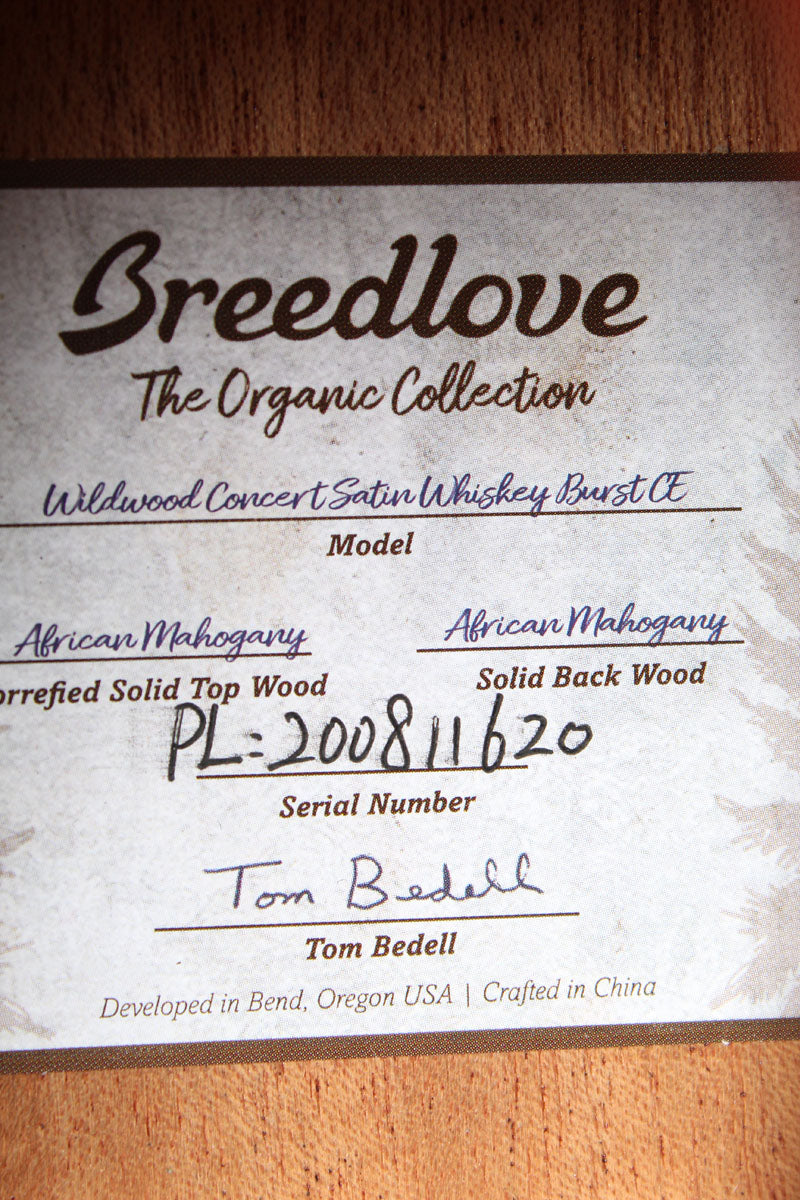 Breedlove
The Organic Collection
Wildwood Concert Satin Whiskey Burst CE
Model
African Mahogany African Mahogany
orrefied Solid Top Wood Solid Back Wood
PL:200811620
Serial Number
Tom Bedell
Tom Bedell
Developed in Bend, Oregon USA | Crafted in China